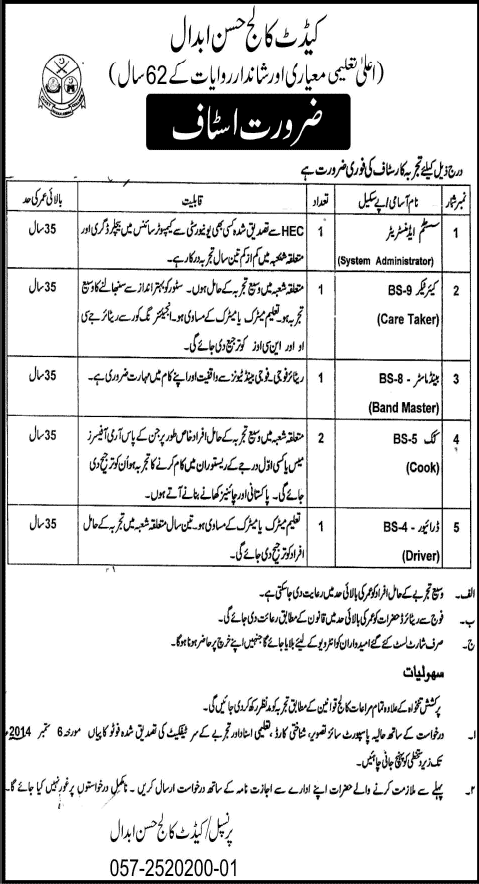 کیڈٹ کالج حسن ابدال
(اعلیٰ تعلیمی معیار اور شاندار روایات کے 62 سال)
ضرورت اسٹاف
درج ذیل کیلئے تجربہ کار سٹاف کی فوری ضرورت ہے
نمبر شمار نام آسامی / پے سکیل تعداد قابلیت بالائی عمر کی حد
1 سسٹم ایڈمنسٹریٹر (System Administrator) 1 HEC سے تصدیق شدہ کسی بھی یونیورسٹی سے کمپیوٹر سائنس میں بیچلر ڈگری اور 35 سال
متعلقہ شعبہ میں کم از کم تین سال تجربہ درکار ہے۔
2 کیئر ٹیکر BS-9 (Care Taker) 1 متعلقہ شعبہ میں وسیع تجربہ کے حامل ہوں۔ سٹور کو بہتر انداز سے سنبھالنے کا وسیع 35 سال
تجربہ ہو۔ تعلیم میٹرک یا میٹرک کے مساوی ہو۔ انجینئرنگ کور سے ریٹائر جے سی
او اور این سی اوز کو ترجیح دی جائے گی۔
3 بینڈ ماسٹر - BS-8 (Band Master) 1 ریٹائر فوجی۔ فوجی بینڈ ٹیونز سے واقفیت اور اپنے کام میں مہارت ضروری ہے۔ 35 سال
4 کک BS-5 (Cook) 2 متعلقہ شعبہ میں وسیع تجربہ کے حامل افراد خاص طور پر جن کے پاس آرمی آفیسرز 35 سال
میس یا کسی اوّل درجے کے ریستوران میں کام کرنے کا تجربہ ہو اُن کو ترجیح دی
جائے گی۔ پاکستانی اور چائنیز کھانے بنانے آتے ہوں۔
5 ڈرائیور - BS-4 (Driver) 1 تعلیم میٹرک یا میٹرک کے مساوی ہو۔ تین سال متعلقہ شعبہ میں تجربہ کے حامل 35 سال
افراد کو ترجیح دی جائے گی۔
الف۔ وسیع تجربے کے حامل افراد کو عمر کی بالائی حد میں رعایت دی جا سکتی ہے۔
ب۔ فوج سے ریٹائرڈ حضرات کو عمر کی بالائی حد میں قانون کے مطابق رعائت دی جائے گی۔
ج۔ صرف شارٹ لسٹ کئے گئے امیدواران کو انٹرویو کے لیئے بلایا جائے گا جنہیں اپنے خرچ پر حاضر ہونا ہو گا۔
سہولیات
پرکشش تنخواہ کے علاوہ تمام مراعات کالج قوانین کے مطابق تجربہ کو مدنظر رکھ کر دی جائیں گی۔
۱۔ درخواست کے ساتھ حالیہ پاسپورٹ سائز تصویر، شناختی کارڈ، تعلیمی اسناد اور تجربے کے سرٹیفکیٹ کی تصدیق شدہ فوٹو کاپیاں مورخہ 6 ستمبر 2014ء
تک زیر دستخطی کو پہنچ جانی چاہئیں۔
۲۔ پہلے سے ملازمت کرنے والے حضرات اپنے ادارے سے اجازت نامہ کے ساتھ درخواست ارسال کریں۔ نامکمل درخواستوں پر غور نہیں کیا جائے گا۔
پرنسپل / کیڈٹ کالج حسن ابدال
057-2520200-01